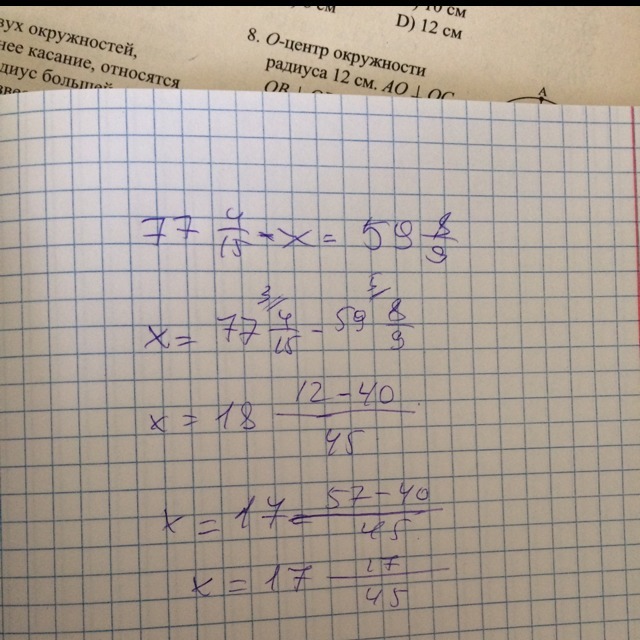 вух окружностей,
нее касание, относятся
диус большей
D) 12 см
8. О-центр окружности
радиуса 12 см. AO ⊥ OC
A
77 4/15 - x = 59 8/9
3/ 5/
x = 77 4/15 - 59 8/9
x = 18 12-40/45
x = 17 57-40/45
x = 17 17/45